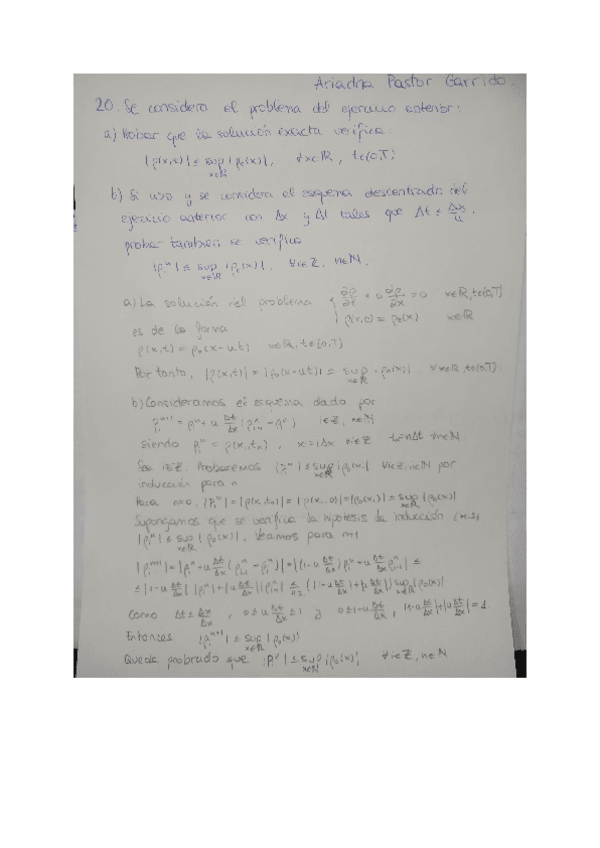 Ariadna Pastor Garrido.
20. Se considera el problema del ejercicio anterior:
a) Probar que la solución exacta verifica
|ρ(x,t)| ≤ sup_{x∈ℝ} |ρ₀(x)|, ∀x∈ℝ, t∈[0,T]
b) Si u>0 y se considera el esquema descentrado del
ejercicio anterior con Δx y Δt tales que Δt ≤ Δx/u,
probar también se verifica
|ρᵢⁿ| ≤ sup_{x∈ℝ} |ρ₀(x)|, ∀i∈ℤ, n∈ℕ.
a) La solución del problema { ∂ρ/∂t + u ∂ρ/∂x = 0 x∈ℝ, t∈(0,T)
ρ(x,0) = ρ₀(x) x∈ℝ
es de la forma
ρ(x,t) = ρ₀(x-ut) x∈ℝ, t∈[0,T)
Por tanto, |ρ(x,t)| = |ρ₀(x-ut)| ≤ sup_{x∈ℝ} |ρ₀(x)| ∀x∈ℝ, t∈(0,T).
b) Consideramos el esquema dado por
ρᵢⁿ⁺¹ = ρᵢⁿ + u Δt/Δx (ρᵢ₋₁ⁿ - ρᵢⁿ) i∈ℤ, n∈ℕ
siendo ρᵢⁿ = ρ(xᵢ,tₙ), xᵢ = iΔx ∀i∈ℤ tₙ = nΔt ∀n∈ℕ
Sea i∈ℤ. Probaremos |ρᵢⁿ| ≤ sup_{x∈ℝ} |ρ₀(x)| ∀i∈ℤ, n∈ℕ por
inducción para n
Para n=0, |ρᵢ⁰| = |ρ(xᵢ,t₀)| = |ρ(xᵢ,0)| = |ρ₀(xᵢ)| ≤ sup_{x∈ℝ} |ρ₀(x)|
Supongamos que se verifica la hipótesis de inducción
|ρᵢⁿ| ≤ sup_{x∈ℝ} |ρ₀(x)|. Veamos para n+1
|ρᵢⁿ⁺¹| = |ρᵢⁿ + u Δt/Δx (ρᵢ₋₁ⁿ - ρᵢⁿ)| = |(1 - u Δt/Δx) ρᵢⁿ + u Δt/Δx ρᵢ₋₁ⁿ| ≤
≤ |1 - u Δt/Δx| |ρᵢⁿ| + |u Δt/Δx| |ρᵢ₋₁ⁿ| ≤ (|1 - u Δt/Δx| + |u Δt/Δx|) sup_{x∈ℝ} |ρ₀(x)|
Como 0 ≤ u Δt/Δx ≤ 1 y 0 ≤ 1 - u Δt/Δx, |1 - u Δt/Δx| + |u Δt/Δx| = 1.
Entonces |ρᵢⁿ⁺¹| ≤ sup_{x∈ℝ} |ρ₀(x)|
Queda probrado que |ρᵢⁿ| ≤ sup_{x∈ℝ} |ρ₀(x)| ∀i∈ℤ, n∈ℕ